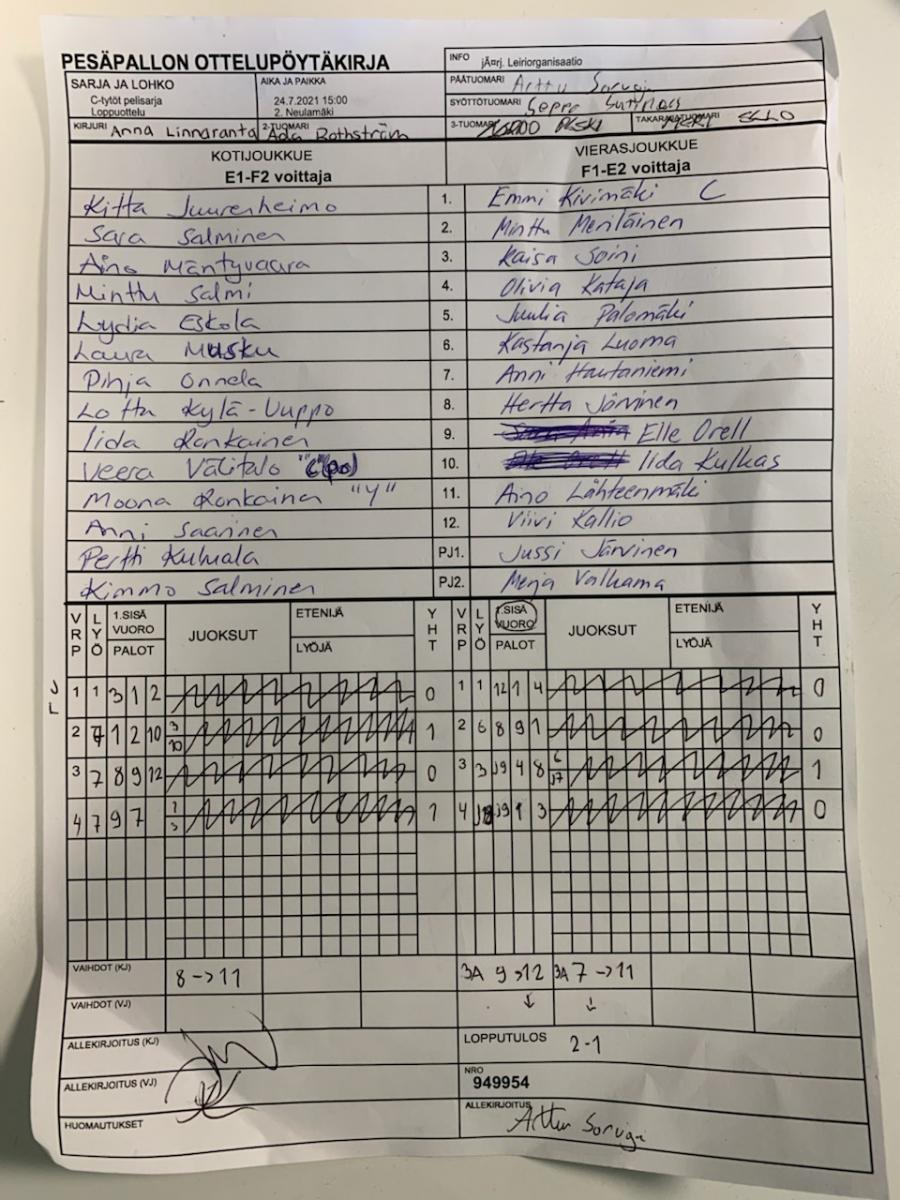 PESÄPALLON OTTELUPÖYTÄKIRJA
INFO jÃ¤rj. Leiriorganisaatio
SARJA JA LOHKO
C-tytöt pelisarja
Loppuottelu
AIKA JA PAIKKA
24.7.2021 15:00
2. Neulamäki
PÄÄTUOMARI Arttu Soruqi
SYÖTTÖTUOMARI Seppo
KIRJURI Anna Linnaranta 2-TUOMARI Ada Rothström
3-TUOMARI TAKARAJATUOMARI
KOTIJOUKKUE VIERASJOUKKUE
E1-F2 voittaja F1-E2 voittaja
Kitta Juurenheimo 1. Emmi Kivimäki C
Sara Salminen 2. Minttu Meriläinen
Aino Mäntyvaara 3. Kaisa Soini
Minttu Salmi 4. Olivia Kataja
Lydia Eskola 5. Juulia Palomäki
Laura Musku 6. Kastanja Luoma
Pihja Onnela 7. Anni Hautaniemi
Lotta Kylä-Uuppo 8. Hertta Järvinen
Iida Ronkainen 9. Elle Orell
Veera Välitalo 10. Iida Kulhas
Moona Ronkainen "Y" 11. Aino Lähteenmäki
Anni Saarinen 12. Viivi Kallio
Pertti Kuhuala PJ1. Jussi Järvinen
Kimmo Salminen PJ2. Merja Valkama
VRP LYÖ 1.SISÄ VUORO PALOT JUOKSUT ETENIJÄ LYÖJÄ YHT VRP LYÖ 1.SISÄ VUORO PALOT JUOKSUT ETENIJÄ LYÖJÄ YHT
JL 1 1 3 1 2 0 1 1 12 1 4 0
2 7 1 2 10 3/10 1 2 6 8 9 1 0
3 7 8 9 12 0 3 3 J9 4 8 6/J7 1
4 7 9 7 1/3 1 4 J9 1 3 0
VAIHDOT (KJ) 8->11 3A 9->12 3A 7->11
VAIHDOT (VJ)
ALLEKIRJOITUS (KJ) LOPPUTULOS 2-1
ALLEKIRJOITUS (VJ) NRO 949954
HUOMAUTUKSET ALLEKIRJOITUS Arttu Soruqi